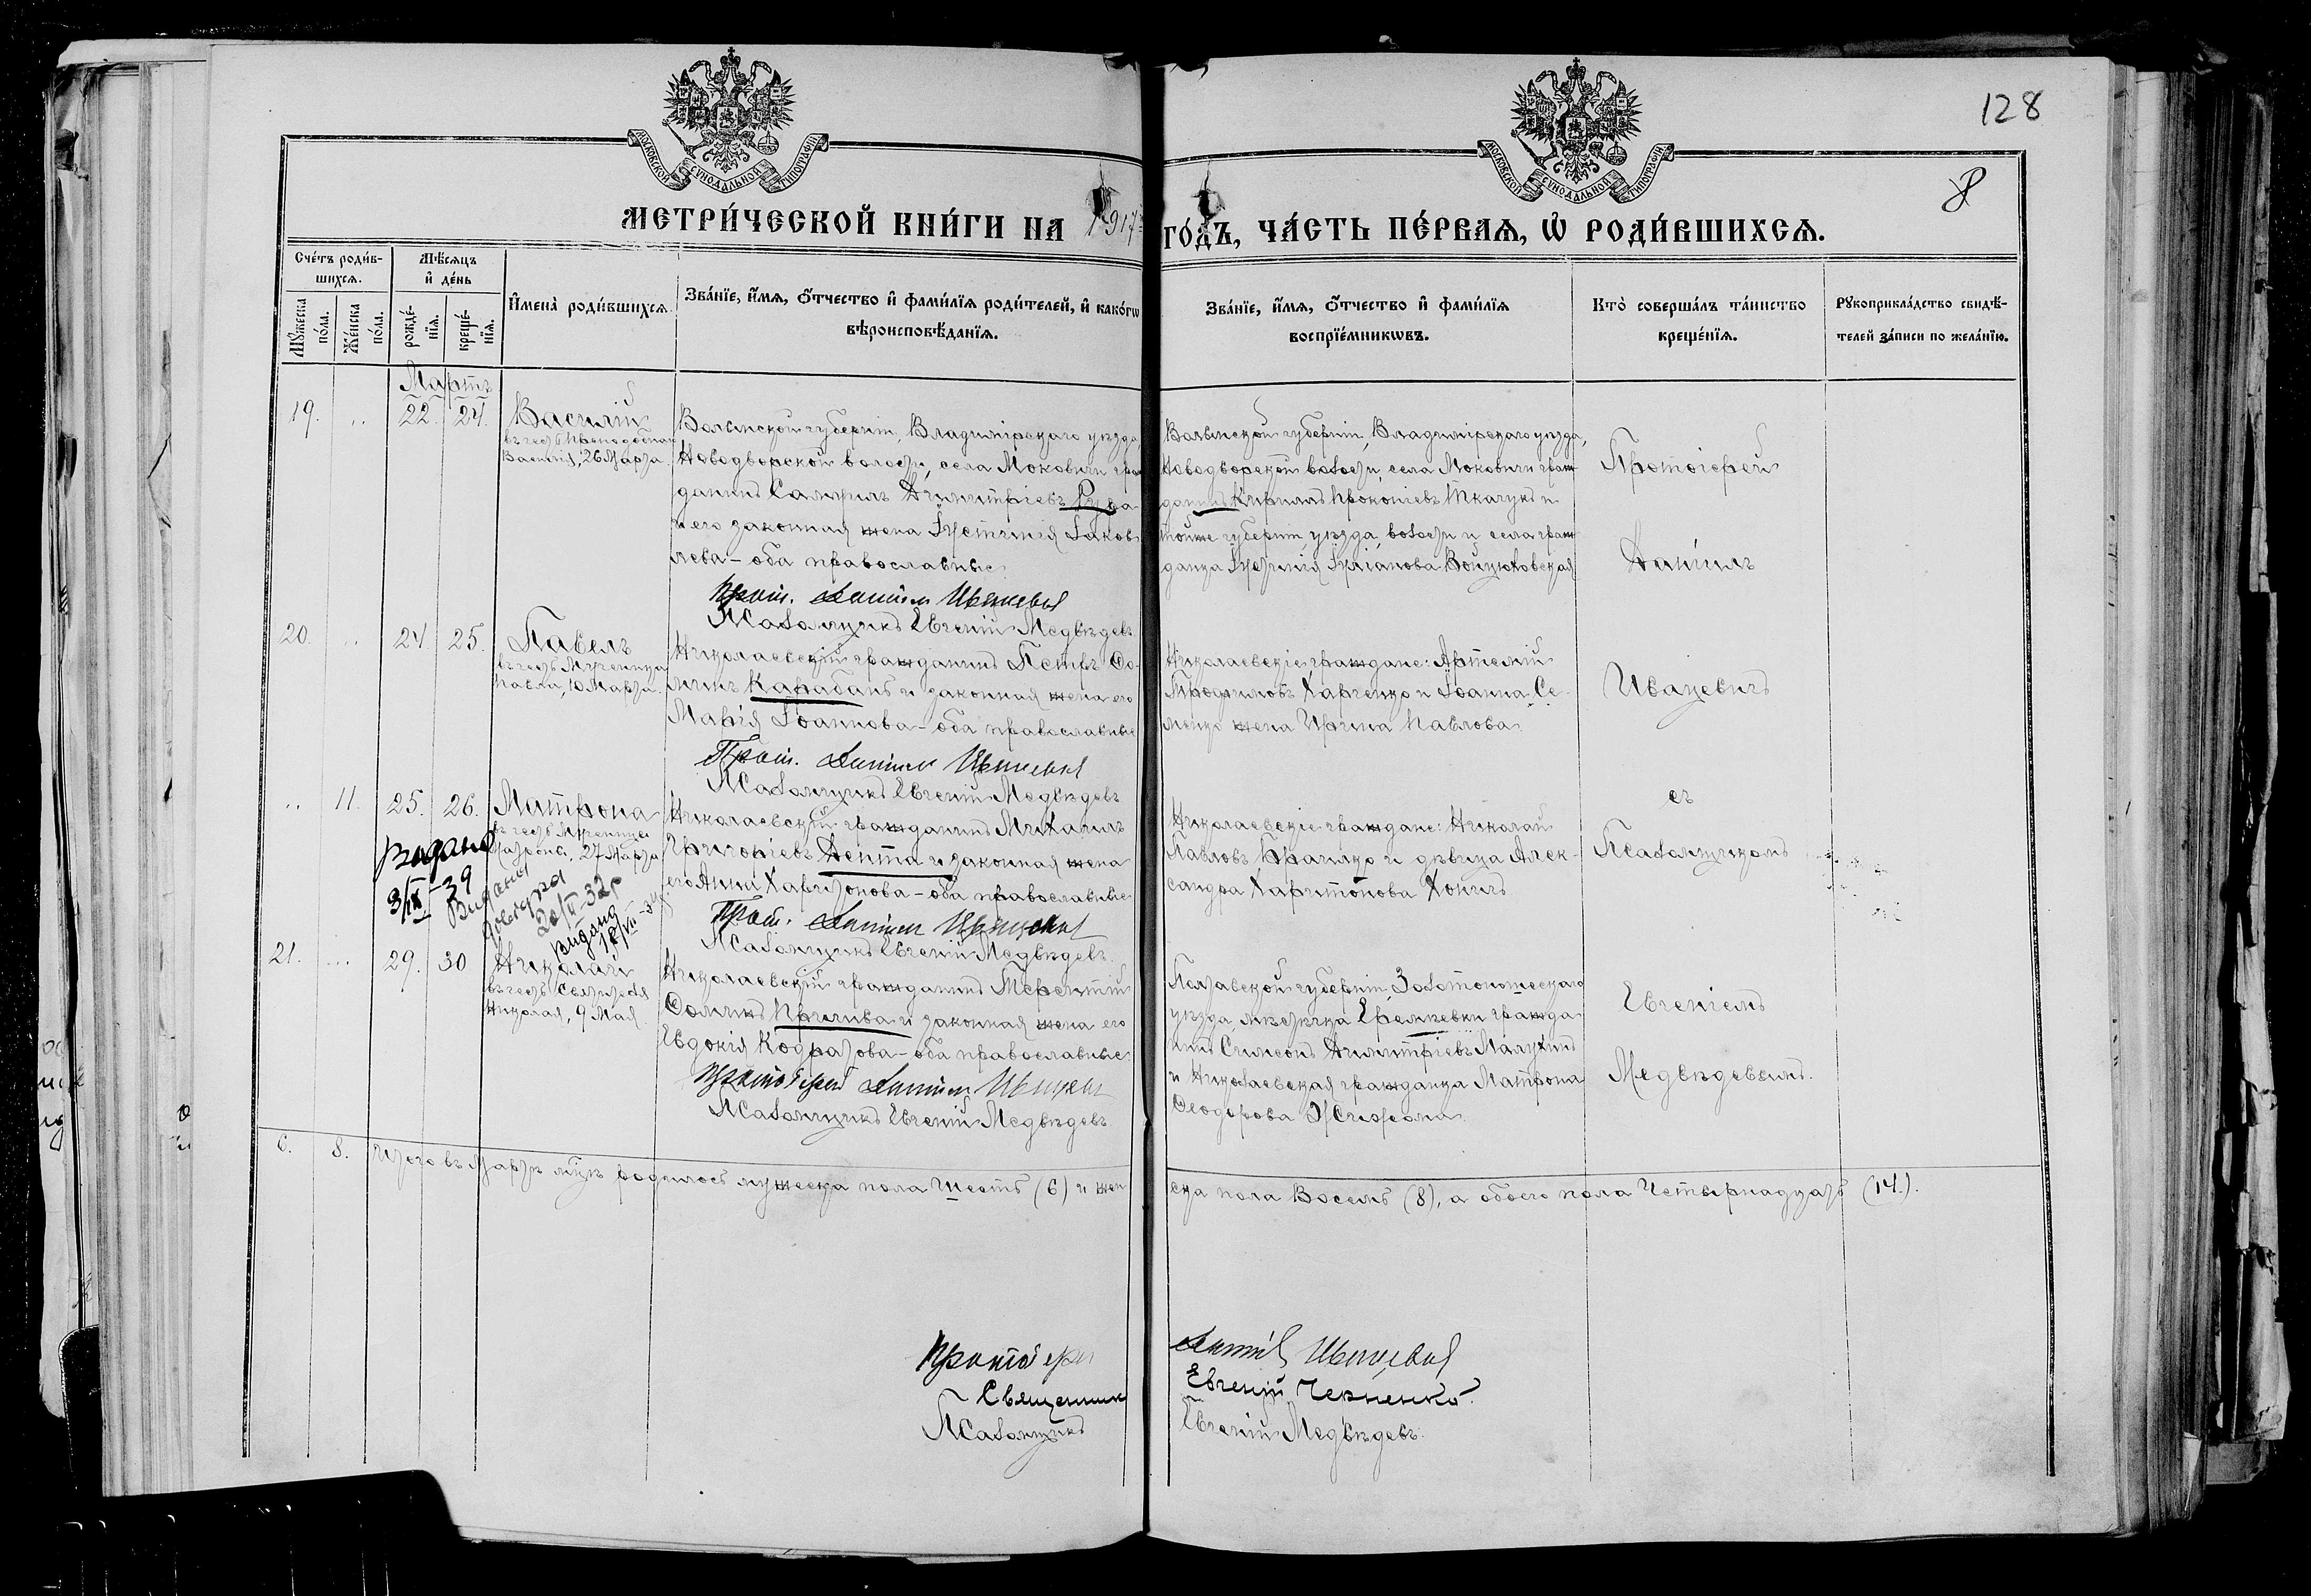 128
8
МОСКОВСКОЙ СѴНОДАЛЬНОЙ ТИПОГРАФІИ
МОСКОВСКОЙ СѴНОДАЛЬНОЙ ТИПОГРАФІИ
МЕТРИ́ЧЕСКОЙ КНИ́ГИ НА 1917
ГО́ДЪ, ЧА́СТЬ ПЕ́РВАѦ, Ѡ҆ РОДИ́ВШИХСѦ.
Сче́тъ роди́в-
шихсѧ.
Мꙋ́жеска по́ла.
Же́нска по́ла.
Мѣ́сѧцъ
и҆ де́нь
рожде́-нїѧ.
креще́-нїѧ.
И҆мена̀ роди́вшихсѧ.
Зва́нїе, и҆́мѧ, ѻ҆́тчество и҆ фами́лїѧ роди́телей, и҆ како́гѡ
вѣроисповѣ́данїѧ.
Зва́нїе, и҆́мѧ, ѻ҆́тчество и҆ фами́лїѧ
воспрїе́мникѡвъ.
Кто̀ соверша́лъ та́инство
креще́нїѧ.
Рꙋкоприкла́дство свидѣ́-
телей за́писи по жела́нїю.
Мартъ
19. .. 22. 24. Василій
въ честь Преподобнаго
Василія, 26 Марта.
Волынской губерніи, Владимірскаго уѣзда,
Новодворской волости, села Моковичи граж
данинъ Самуилъ Димитріевъ Руда
и его законная жена Іустинія Іаков
лева - оба православные
Прот. Даніилъ Ивацевичъ
Псаломщикъ Евгеній Медвѣдевъ.
Волынской губерніи, Владимірскаго уѣзда,
Новодворской волости, села Моковичи граж
данинъ Кириллъ Прокопіевъ Ткачукъ и
той же губерніи, уѣзда, волости и села граж
данка Іустинія Іуліанова Войцюховская
Протоіерей
Даніилъ
20. .. 24 25. Павелъ
въ честь Мученика
Павла, 10 Марта.
Николаевскій гражданинъ Петръ Ѳо-
минъ Карабанъ и законная жена его
Марія Іоаннова - оба православные
Прот. Даніилъ Ивацевичъ
Псаломщикъ Евгеній Медвѣдевъ
Николаевскіе граждане: Артемій
Трофимовъ Харченко и Іоанна Се-
менко жена Ирина Павлова.
Ивацевичъ
.. 11. 25. 26. Матрона
въ честь Мученицы
Матроны, 27 Марта
Видано
3/IX-39
Видано
довідка
20/II-32р
Видано
Николаевскій гражданинъ Михаилъ
Григоріевъ Лепта и законная жена
его Анна Харитонова - оба православные
Прот. Даніилъ Ивацевичъ
Псаломщикъ Евгеній Медвѣдевъ.
Николаевскіе граждане: Николай
Павловъ Браилко и дѣвица Алек-
сандра Харитонова Конигъ
съ
Псаломщикомъ
21. ... 29. 30 Николай
въ честь Святителя
Николая, 9 Мая.
Николаевскій гражданинъ Терентій
Ѳоминъ Кричива и законная жена его
Евдокія Кодратова - оба православные
Протоіерей Даніилъ Ивацевичъ
Псаломщикъ Евгеній Медвѣдевъ.
Полтавской губерніи, Золотоношскаго
уѣзда, мѣстечка Еремѣевки гражда-
нинъ Симеонъ Димитріевъ Малукинъ
и Николаевская гражданка Матрона
Ѳеодорова
Евгеніемъ
Медвѣдевымъ.
6. 8. Итого въ Мартѣ мцѣ родилось мужеска пола Шесть (6) и жен
ска пола Восемь (8), а обоего пола Четырнадцать (14).
Протоіерей Даніилъ Ивацевичъ
Священникъ Евгеній Черненко.
Псаломщикъ Евгеній Медвѣдевъ.